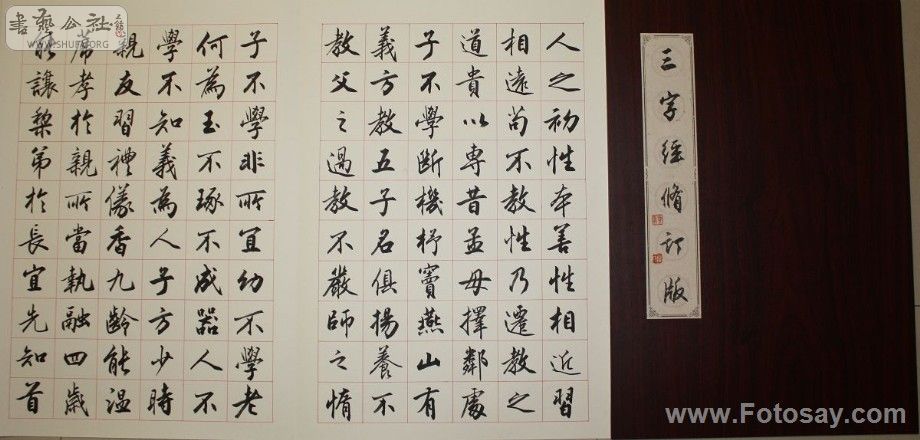 三字經脩訂版
人之初性本善性相近習
相遠苟不教性乃遷教之
道貴以專昔孟母擇鄰處
子不學斷機杼竇燕山有
義方教五子名俱揚養不
教父之過教不嚴師之惰
子不學非所宜幼不學老
何為玉不琢不成器人不
學不知義為人子方少時
親友習禮儀香九齡能溫
席孝於親所當執融四歲
能讓梨弟於長宜先知首
書藝公社
www.SHUFA.ORG
www.Fotosay.com